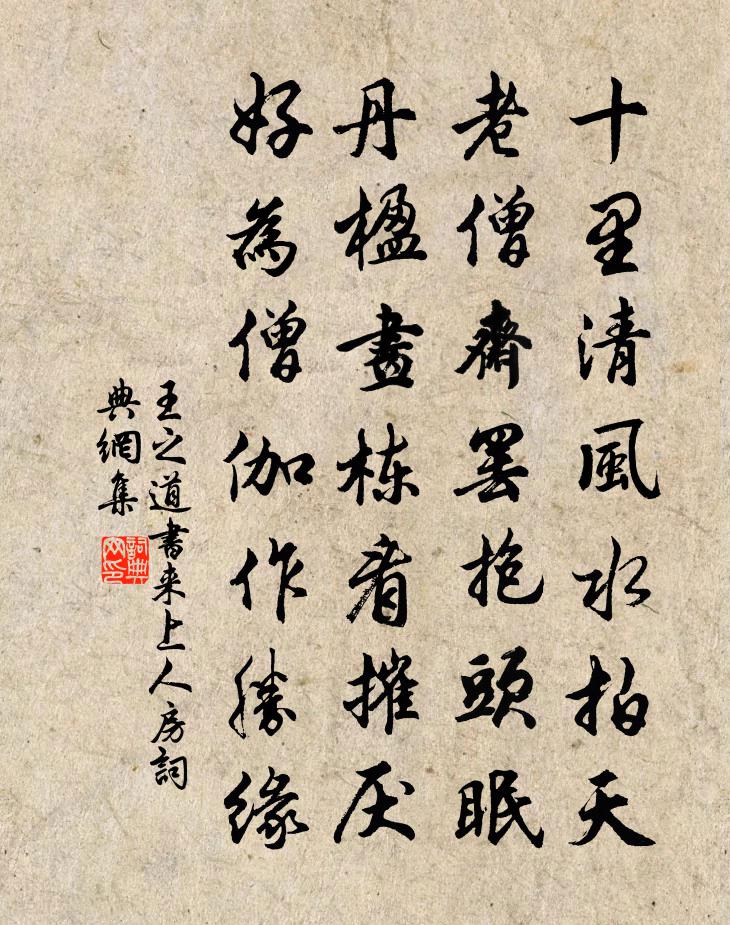 十里清風水拍天
老僧齋罷抱頭眠
丹楹畫棟看摧灰
好為僧伽作勝緣
王之道書来上人房詞
典網集
詞典網印